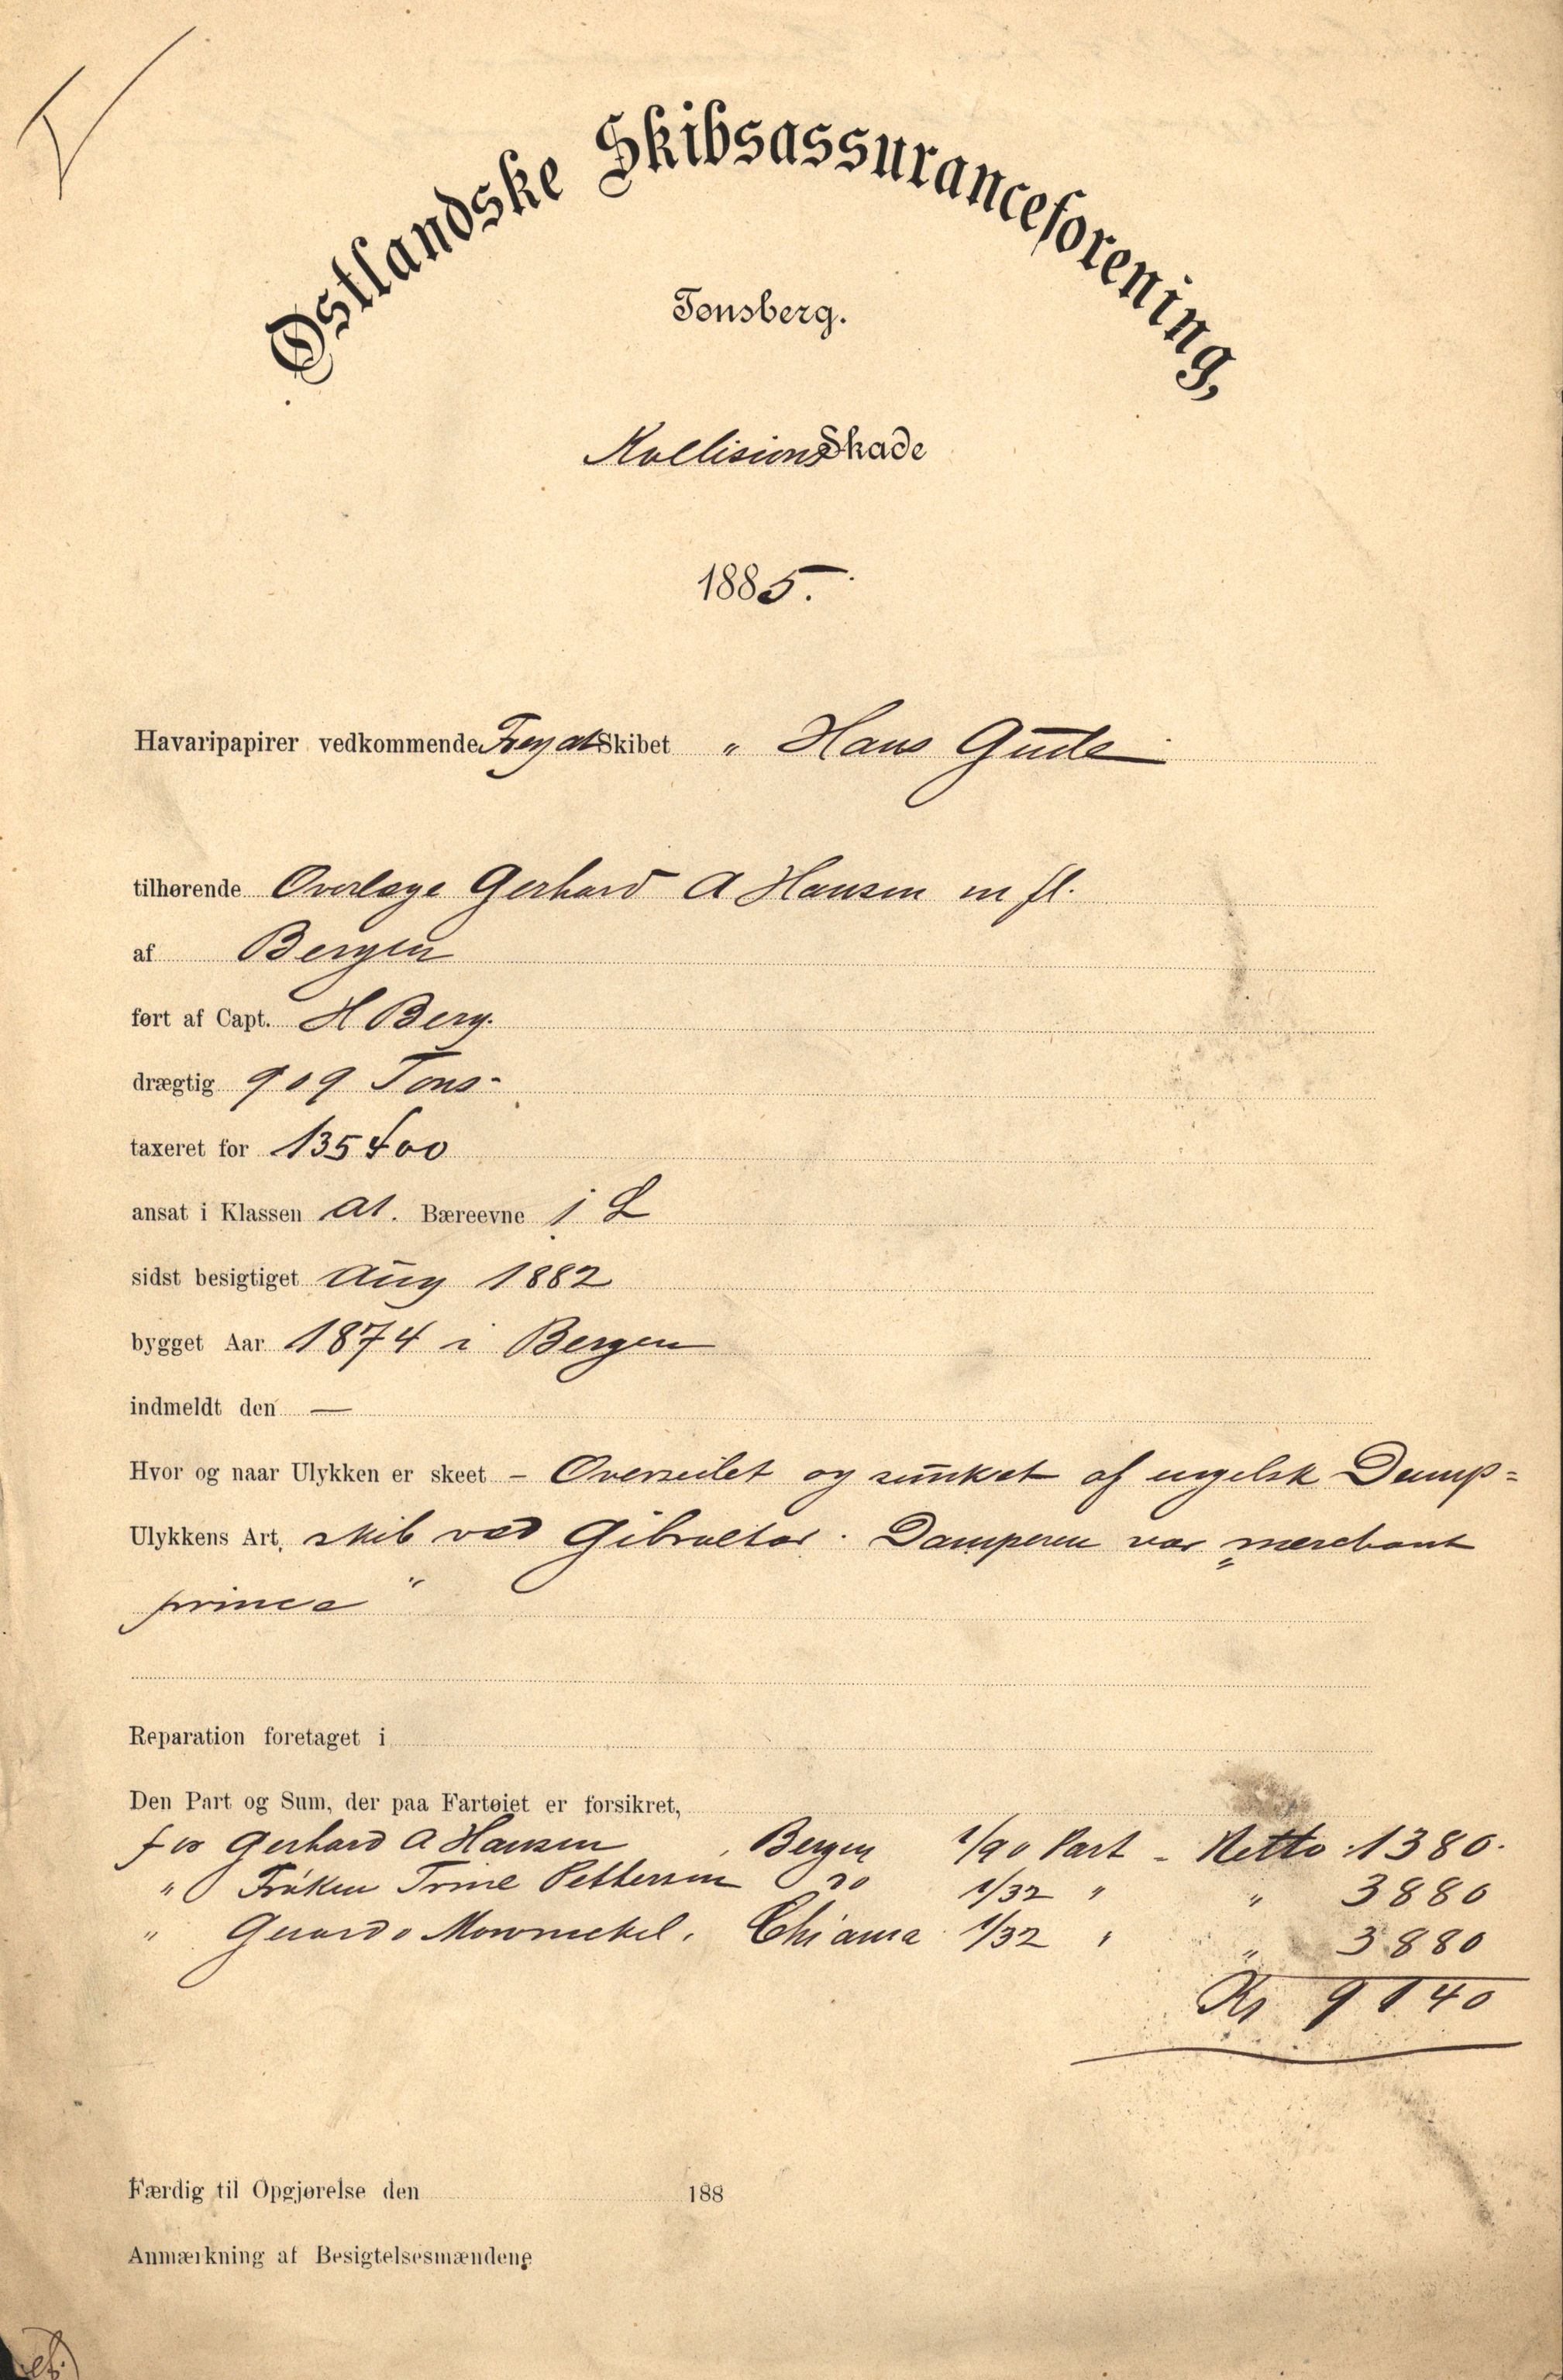 Østlandske Skibsassuranceforening,
Tønsberg.
KollisionsSkade
1885.
Havaripapirer vedkommende FregatSkibet „ Hans Gude
tilhørende Overlæge Gerhard A Hansen m fl.
af Bergen
ført af Capt. H Berg.
drægtig 909 Tons.
taxeret for 135400
ansat i Klassen A1. Bæreevne
sidst besigtiget Aug 1882
bygget Aar 1874 i Bergen
indmeldt den —
Hvor og naar Ulykken er skeet - Overseilet og sunket af engelsk Damp=
Ulykkens Art, skib ved Gibraltar. Damperen var „merchant
prince“
Reparation foretaget i
Den Part og Sum, der paa Fartøiet er forsikret,
for Gerhard A Hansen Bergen 1/90 Part - Netto 1380.
„ Frøken Trine Pettersen do 1/32 „ „ 3880
„ Gerardo Mowinckel, 1/32 „ „ 3880
Kr 9140
Færdig til Opgjørelse den 188
Anmærkning af Besigtelsesmændene